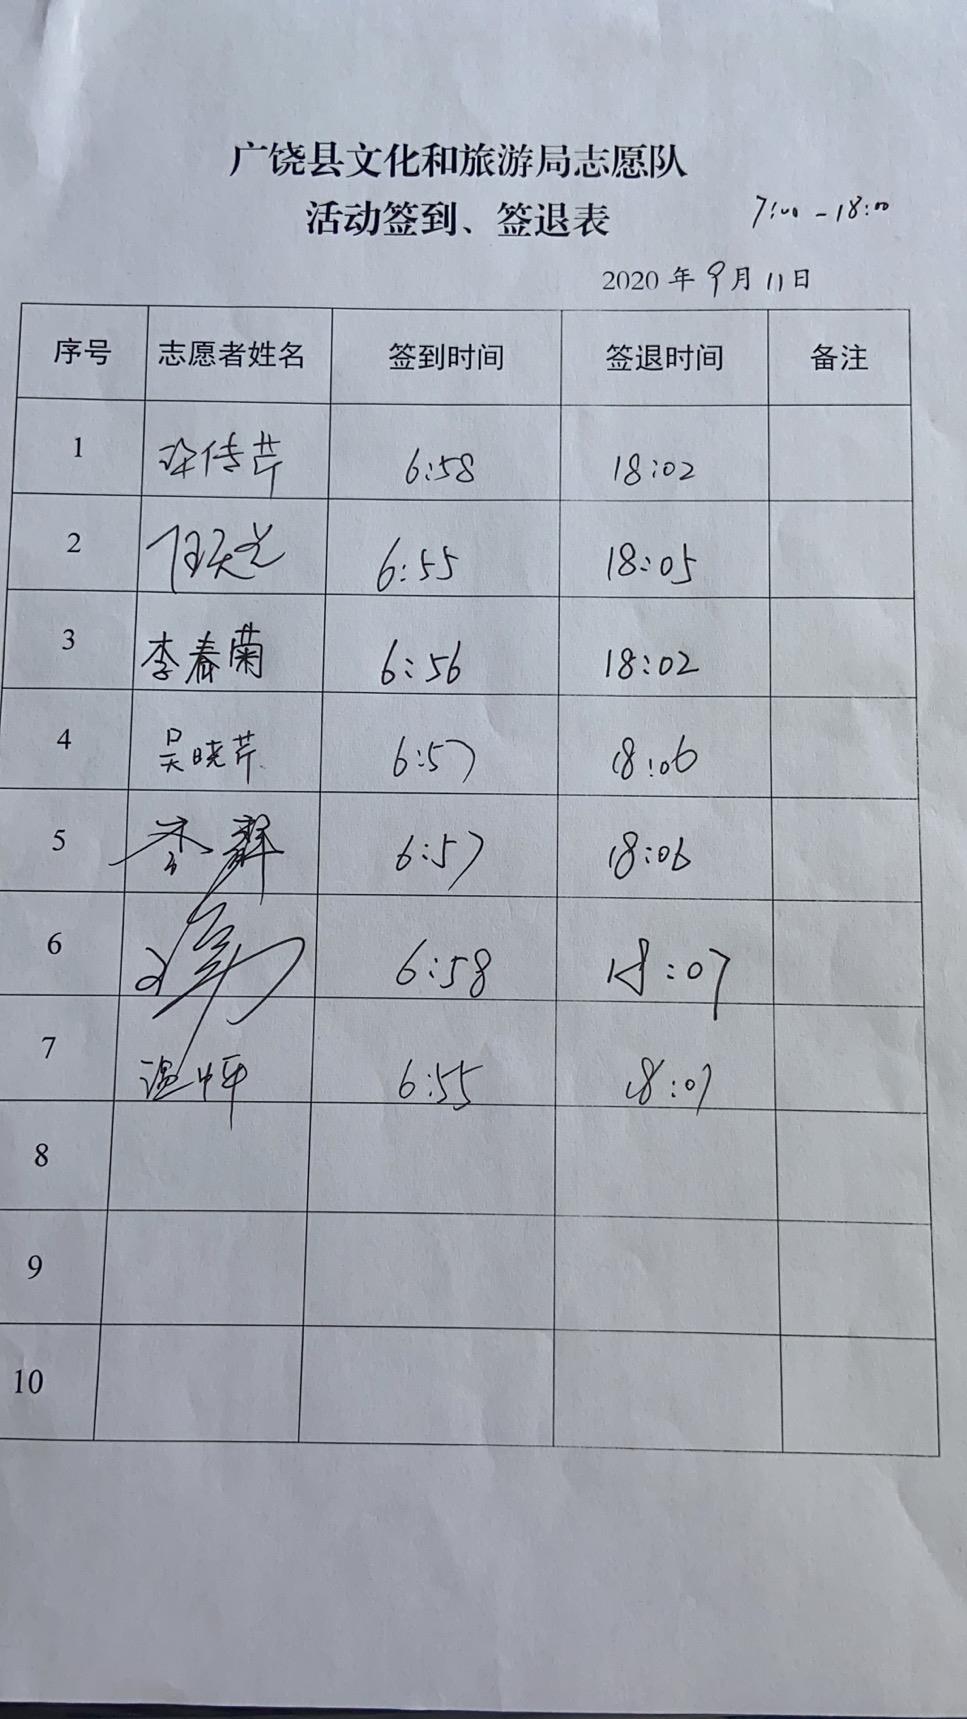 广饶县文化和旅游局志愿队
活动签到、签退表 7:00-18:00
2020年9月11日
序号 志愿者姓名 签到时间 签退时间 备注
1 传芹 6:58 18:02
2 6:55 18:05
3 李春菊 6:56 18:02
4 吴晓芹 6:57 18:06
5 李 6:57 18:06
6 6:58 18:07
7 温 6:55 18:07
8
9
10